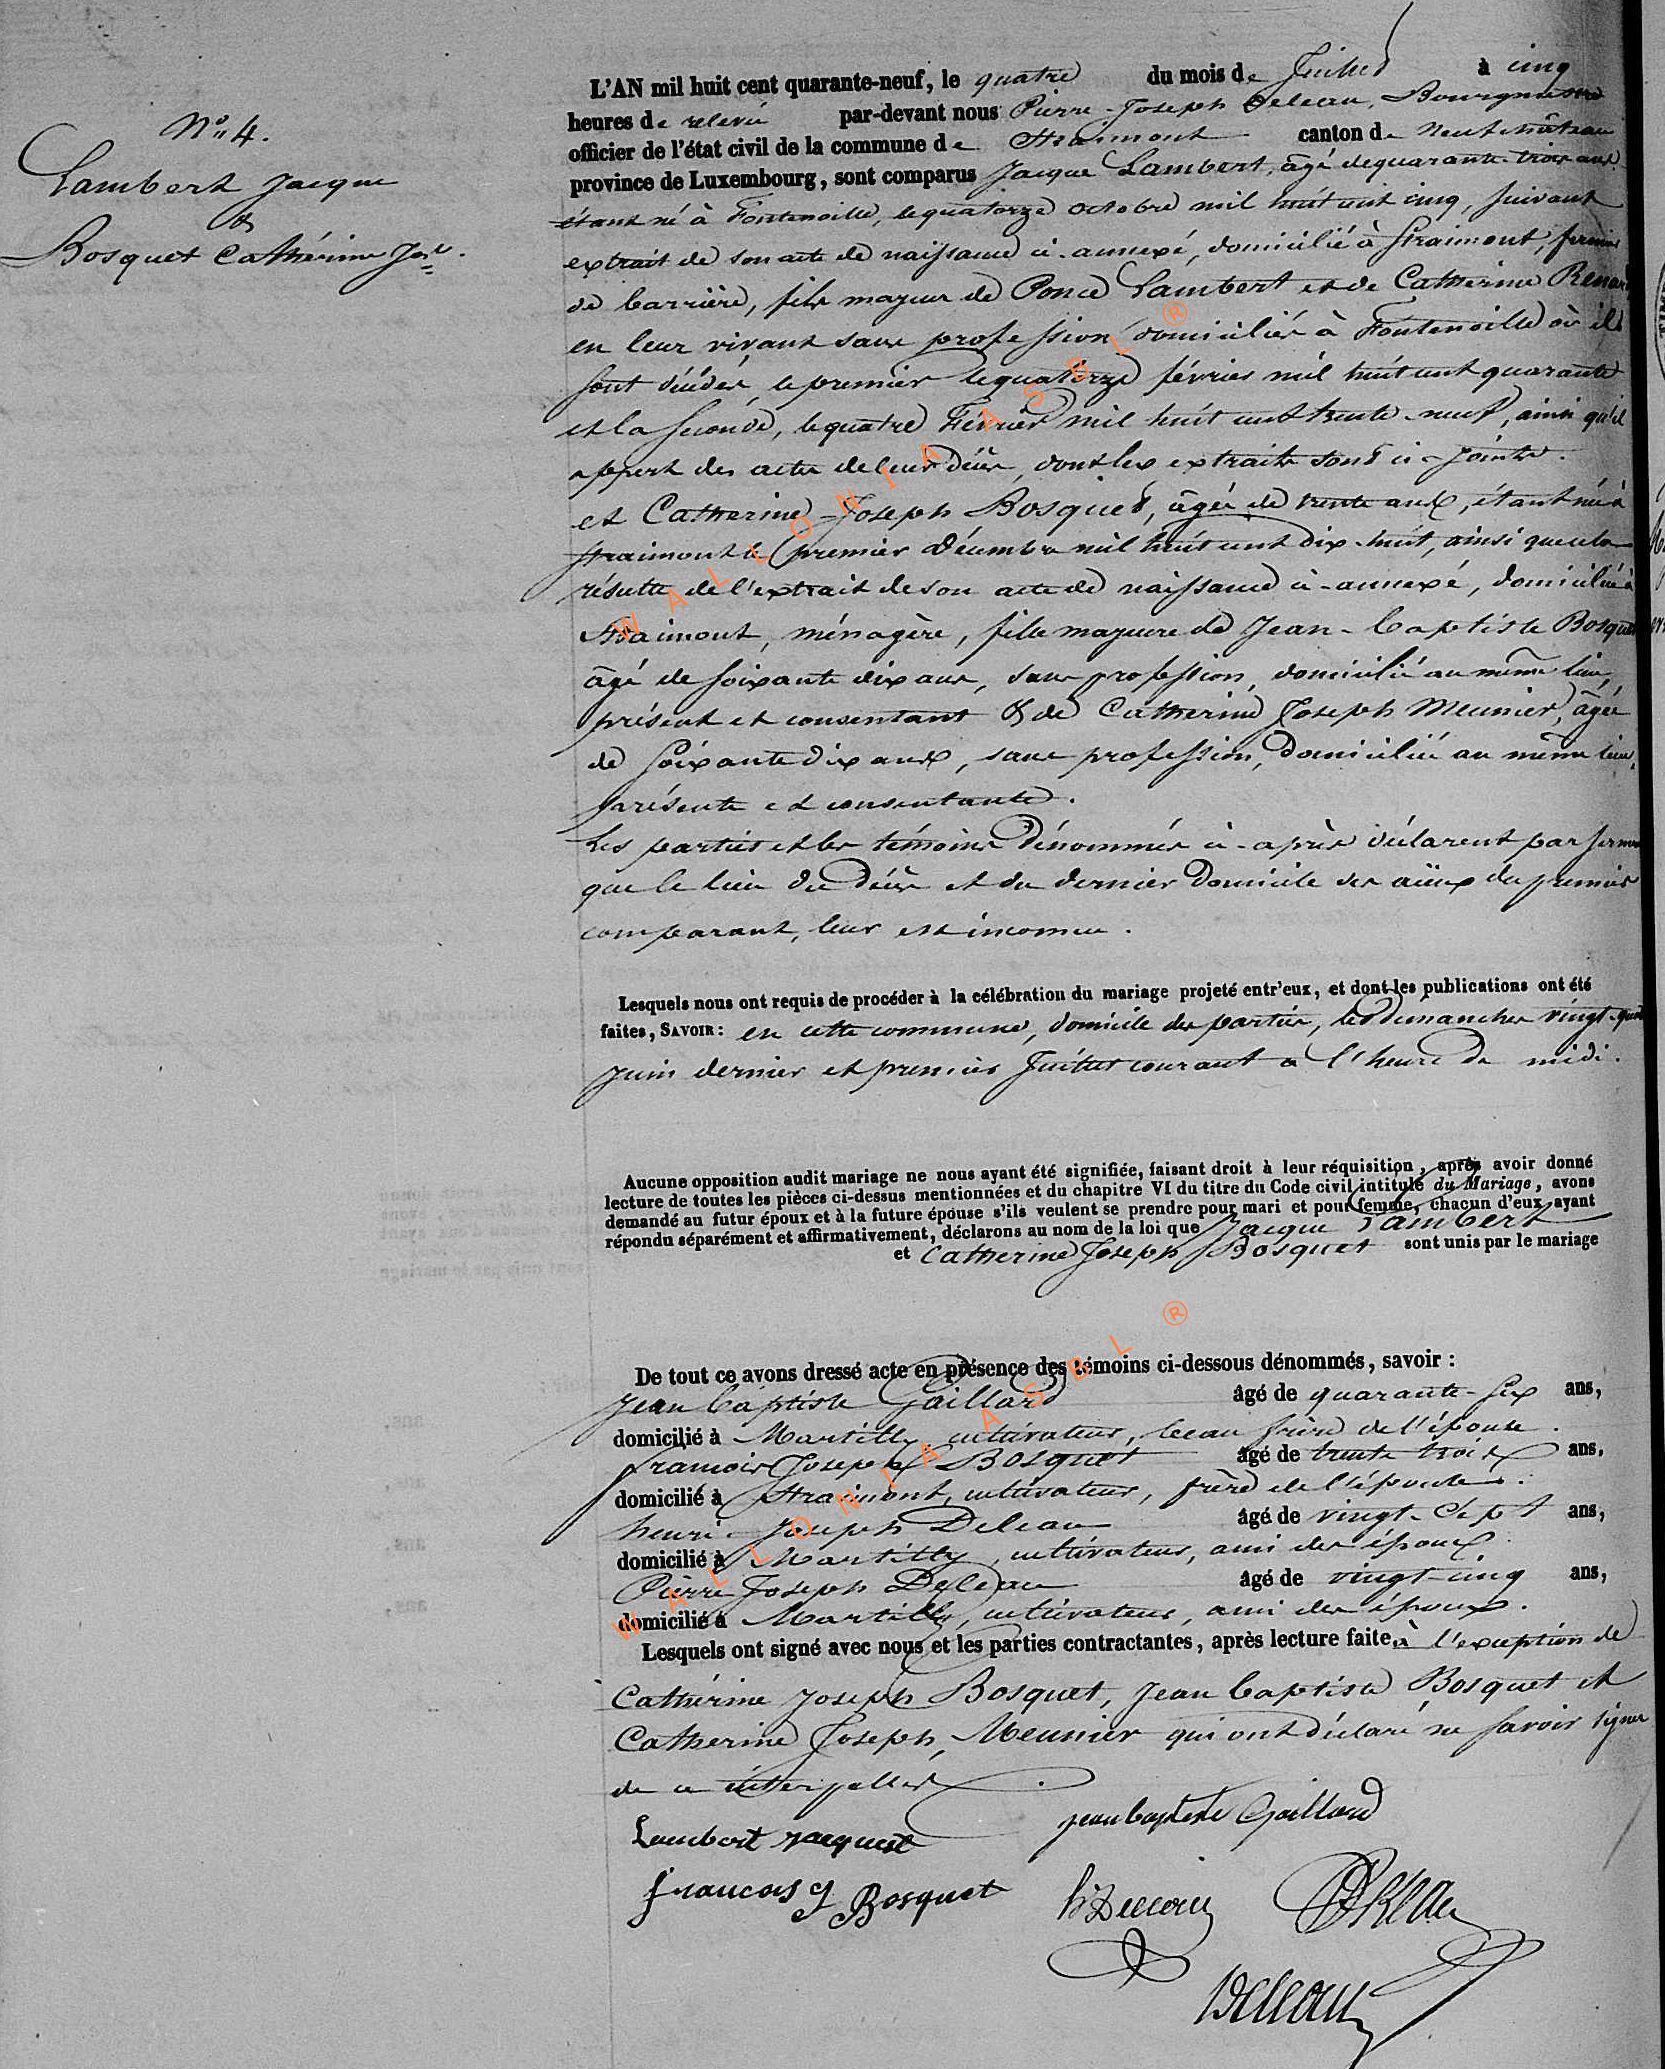 N° 4.
Lambert Jacque
&
Bosquet Cathérine Jos.
L'AN mil huit cent quarante-neuf, le quatre du mois de Juillet à cinq
heures de relevée par-devant nous Pierre-Joseph Deleau, Bourgmestre
officier de l'état civil de la commune de Straimont canton de Neufchâteau
province de Luxembourg, sont comparus Jacque Lambert, âgé de quarante-trois ans
étant né à Fontenoille, le quatorze octobre mil huit cent cinq, suivant
extrait de son acte de naissance ci-annexé, domicilié à Straimont, fermier
de barrière, fils majeur de Ponce Lambert et de Catherine Renard
en leur vivant sans profession domiciliés à Fontenoille où ils
sont décédés, le premier le quatorze février mil huit cent quarante
et la seconde, le quatre Février mil huit cent trente-neuf, ainsi qu'il
appert des actes de leur décès, dont les extraits sont ci-joints.
et Catherine-Joseph Bosquet, âgée de trente ans, étant née à
Straimont le premier décembre mil huit cent dix-huit, ainsi que cela
résulte de l'extrait de son acte de naissance ci-annexé, domiciliée à
Straimont, ménagère, fille majeure de Jean-Baptiste Bosquet
âgé de soixante dix ans, sans profession, domicilié au même lieu,
présent et consentant & de Catherine Joseph Meunier, âgée
de soixante dix ans, sans profession, domiciliée au même lieu,
présente et consentante.
Les parties et les témoins dénommés ci-après déclarent par serment
que le lieu du décès et du dernier domicile des aïeux du premier
comparant, leur est inconnu.
Lesquels nous ont requis de procéder à la célébration du mariage projeté entr'eux, et dont les publications ont été
faites, SAVOIR: en cette commune, domicile des parties, les dimanches vingt-quatre
Juin dernier et premier Juillet courant à l'heure de midi.
Aucune opposition audit mariage ne nous ayant été signifiée, faisant droit à leur réquisition, après avoir donné
lecture de toutes les pièces ci-dessus mentionnées et du chapitre VI du titre du Code civil intitulé du Mariage, avons
demandé au futur époux et à la future épouse s'ils veulent se prendre pour mari et pour femme, chacun d'eux ayant
répondu séparément et affirmativement, déclarons au nom de la loi que Jacque Lambert
et Catherine Joseph Bosquet sont unis par le mariage
De tout ce avons dressé acte en présence des témoins ci-dessous dénommés, savoir :
Jean Baptiste Gaillard âgé de quarante-six ans,
domicilié à Martilly cultivateur, beau frère de l'épouse.
François Joseph Bosquet âgé de trente trois ans,
domicilié à Straimont, cultivateur, frère de l'épouse.
henri-Joseph Deleau âgé de vingt-sept ans,
domicilié à Martilly, cultivateur, ami des époux.
Pierre Joseph Deleau âgé de vingt-cinq ans,
domicilié à Martilly, cultivateur, ami des époux.
Lesquels ont signé avec nous et les parties contractantes, après lecture faite, à l'exception de
Cathérine Joseph Bosquet, Jean Baptiste Bosquet et
Catherine Joseph Meunier qui ont déclaré ne savoir signer
de ce interpellés.
Lambert Jacques
jean baptiste Gaillard
francois J Bosquet
h Deleau
Deleau
WALLONIA ASBL ®
WALLONIA ASBL ®